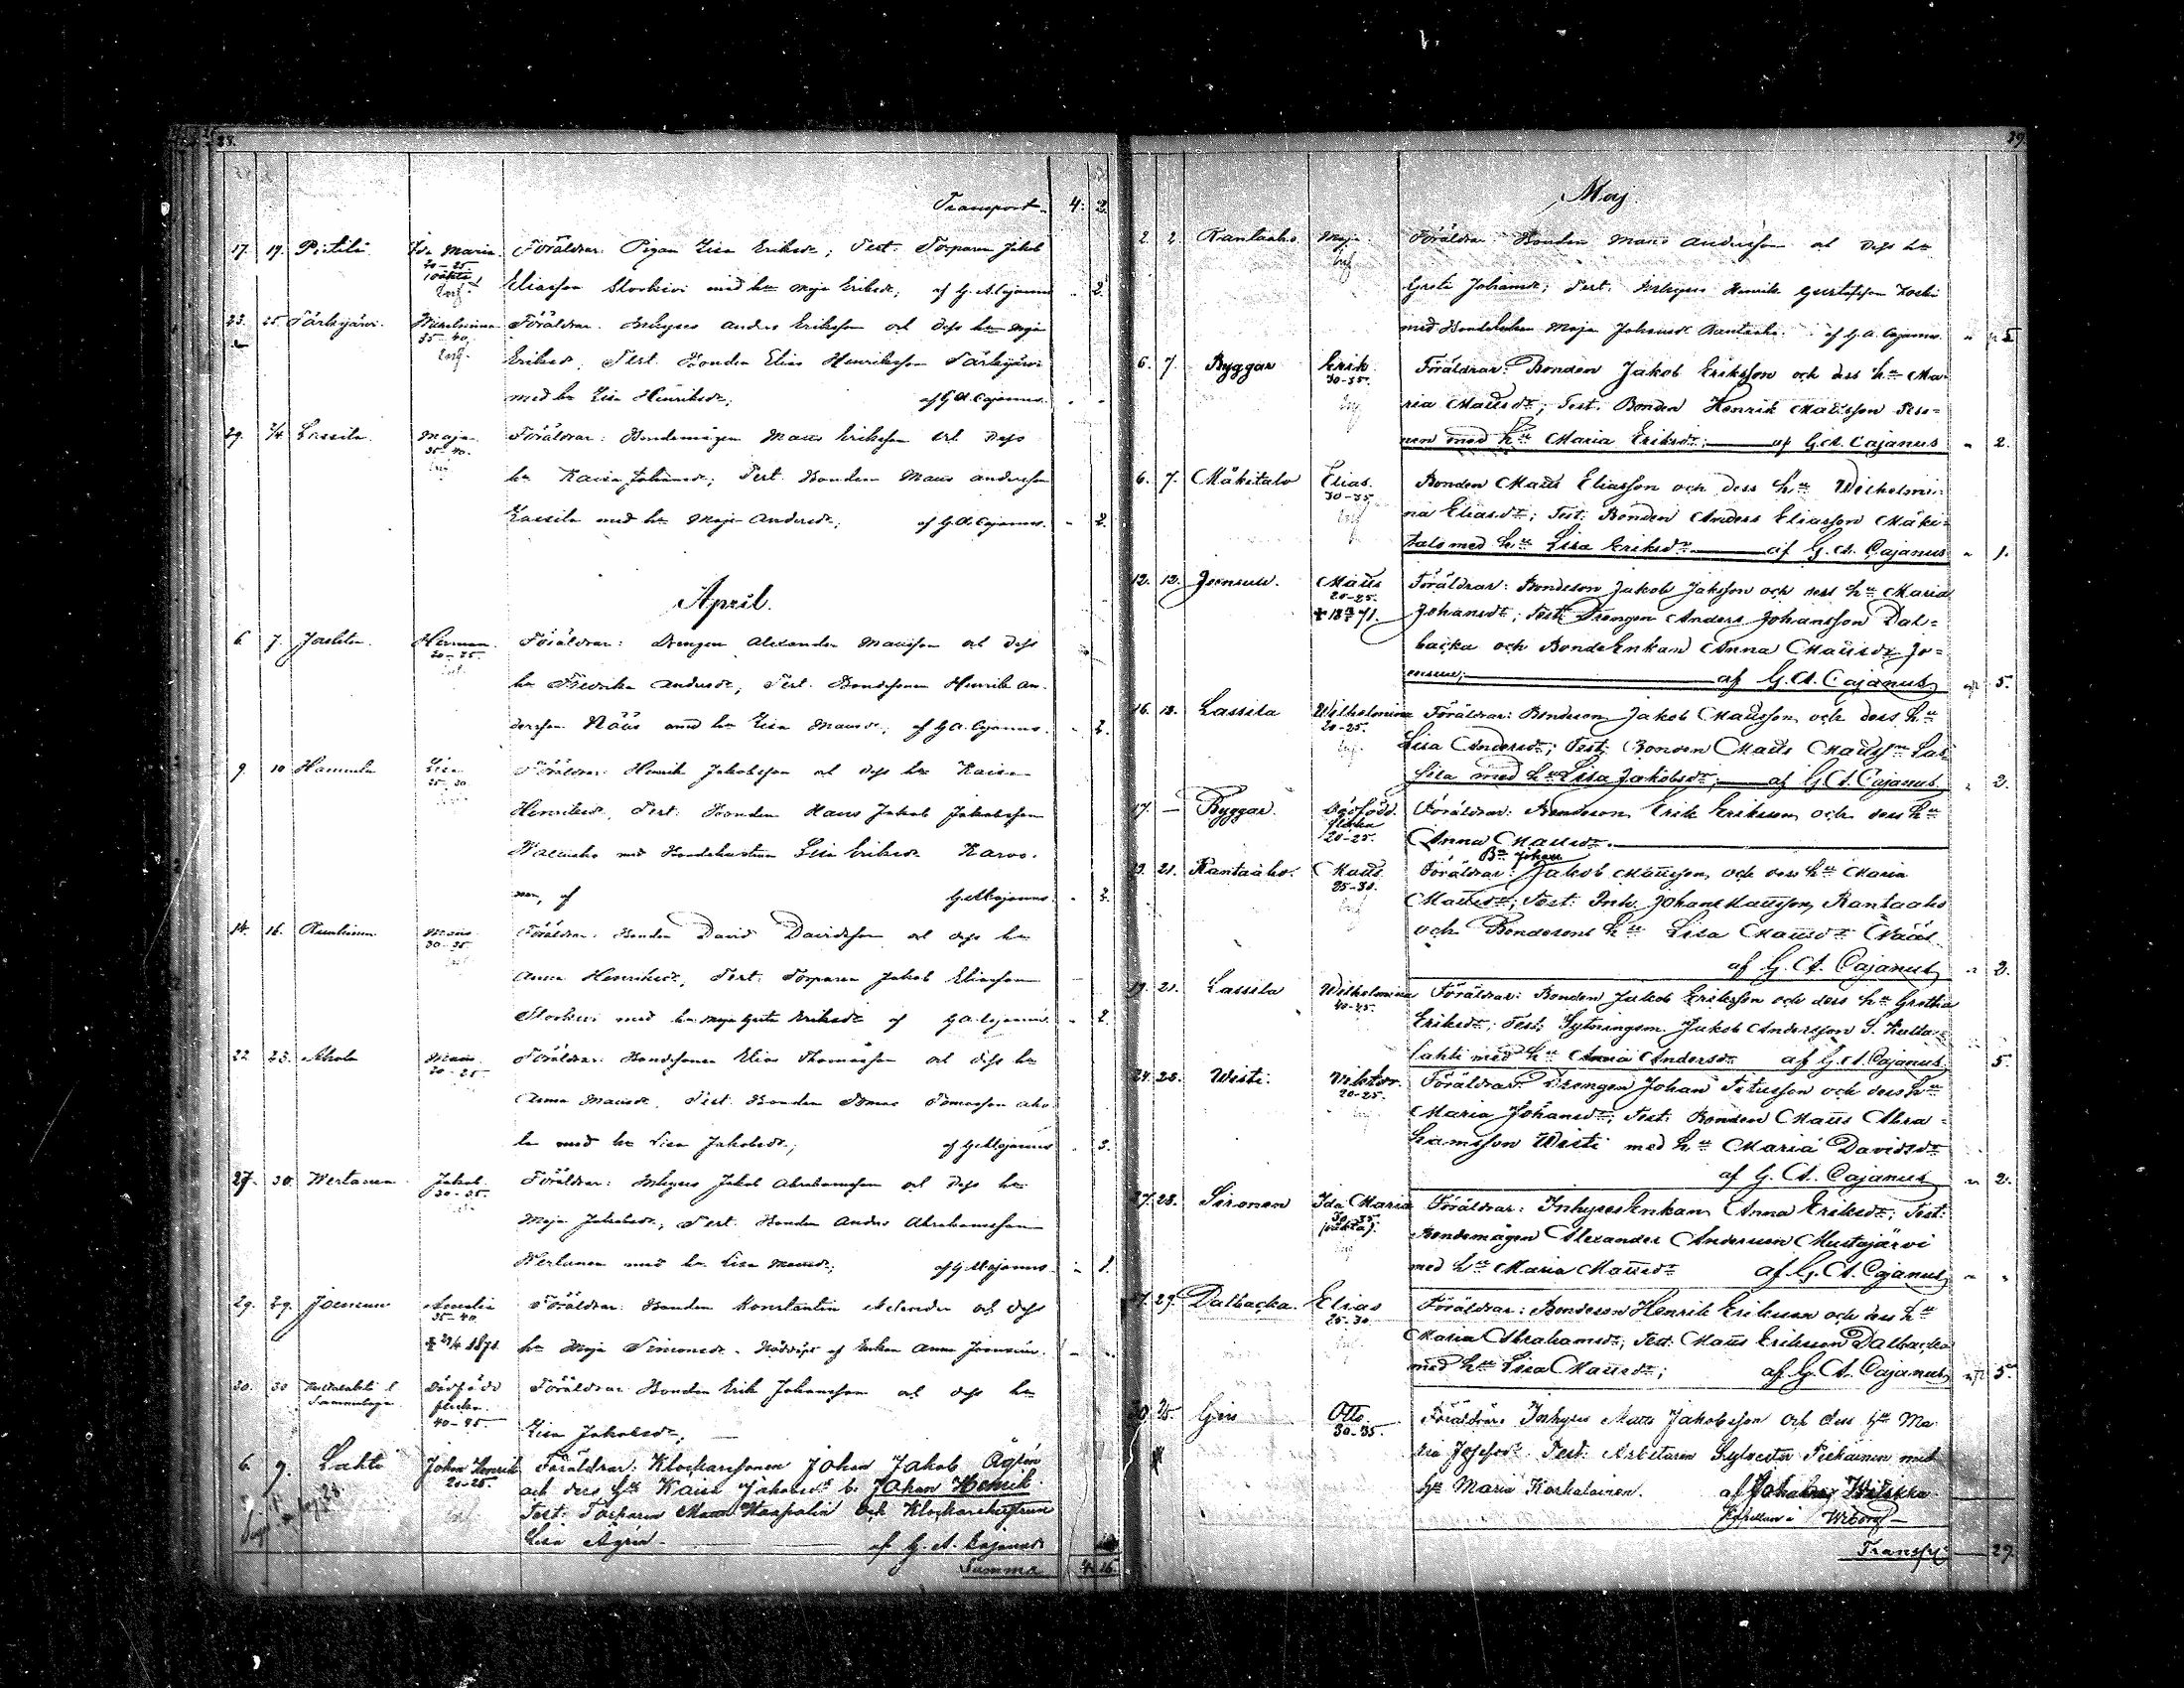 28.
Transport. 4. 2.
17. 19. Pirtilä Ida Maria. Föräldrar: Pigan Lisa Eriksdr; Test: Torparen Jakob
20–25
(oäkta)
Eliasson Storkivi med hu Maja Eriksdr; af G. A. Cajanus 2.
23. 25. Särkijärvi. Wilhelmina Föräldrar: Inhyses Anders Eriksson och dess hu Maja
35–40.
Eriksdr, Test. Bonden Elias Henriksson Särkijärvi
med hu Lisa Henriksdr; af G. A. Cajanus.
29. 2/4 Lassila. Maja Föräldrar: Bondemågen Matts Eriksson och dess
35–40.
hu Kaisa Johansdr; Test. Bonden Matts Andersson
Lassila med hu Maja Andersdr; af G. A. Cajanus. 2.
April.
6. 7. Herman. Föräldrar: Drengen Alexander Mattsson och dess
20–25.
hu Fredrika Andersdr; Test. Bondesonen Henrik An-
dersson Nääs med hu Lisa Mattsdr; af G. A. Cajanus. 2.
9. 10 Hannula Lisa Föräldrar: Henrik Jakobsson och dess hu Kaisa
25–30
Henriksdr, Test: Bonden Hans Jakob Jakobsson
med Bondehustrun Lisa Eriksdr Karvo-
nen, af G. A. Cajanus. 3.
14. 16. Matts Föräldrar: Bonden David Davidsson och dess hu
30–35
Anna Henriksdr, Test: Torparen Jakob Eliasson
Storkivi med hu Maja Greta Eriksdr af G. A. Cajanus. 2.
22. 23. Ahola Matts. Föräldrar: Bondesonen Elias Thomasson och dess hu
20–25.
Anna Mattsdr, Test. Bonden Tomas Tomasson Aho-
la med hu Lisa Jakobsdr; af G. A. Cajanus 3.
27. 30. Wertanen Jakob. Föräldrar: Inhyses Jakob Abrahamsson och dess hu
30–35.
Maja Jakobsdr, Test. Bonden Anders Abrahamsson
Wertanen med hu Lisa Mattsdr; af G. A. Cajanus. 1.
29. 29. Joensuu Amalia Föräldrar: Bonden Konstantin Alexander och dess
35–40
† 29/4 1871. hu Maja Simonsdr. Nöddöpt af Enkan Anna Joensuu.
30. 30 Dödfödd Föräldrar Bonden Erik Johansson och dess hu
flicka.
40–45. Lisa Jakobsdr;
6. 9. Lahti Johan Henrik Föräldrar: Klockarsonen Johan Jakob Ågren
20–25.
och dess hu Kaisa Johansdr b. Johan Henrik.
Test: Torparen Matts Haapalin och Klockarehustrun
Lisa Ågren. af G. A. Cajanus
Summa 4. 16.
29
Maj.
2. 2. Rantaaho. Maja. Föräldrar: Bonden Matts Andersson och dess hu
Greta Johansdr; Test: Inhyses Henrik Gustafsson Koski
med Bondehustrun Maja Johansdr Rantaaho. af G. A. Cajanus. 5
6. 7. Byggar Erik. Föräldrar: Bonden Jakob Eriksson och dess hu Ma-
30–35.
ria Mattsdr; Test. Bonden Henrik Mattsson Peso-
nen med hu Maria Eriksdr; af G. A. Cajanus 2.
6. 7. Mäkitalo Elias. Bonden Matts Eliasson och dess hu Wilhelmi-
30–35
na Eliasdr; Test: Bonden Anders Eliasson Mäki-
talo med hu Lisa Eriksdr af G. A. Cajanus 1.
12. 12. Joensuu. Matts Föräldrar: Bondeson Jakob Jakobsson och dess hu Maria
20–25.
Johansdr; Test: Drengen Anders Johansson Dal-
backa och BondeEnkan Anna Mattsdr Jo-
ensuu; af G. A. Cajanus 5.
16. 18. Lassila Wilhelmina Föräldrar: Bondeson Jakob Mattsson och dess hu
20–25.
Lisa Andersdr; Test: Bonden Matts Mattson Las-
sila med hu Lisa Jakobsdr; af G. A. Cajanus. 2.
17. — Byggar. Dödfödd. Föräldrar: Bondeson Erik Eriksson och dess hu
flicka
20–25. Anna Mattsdr.
Bn Johan
19. 21. Rantaaho. Matts Föräldrar: Jakob Mattsson och dess hu Maria
25–30.
Mattsdr; Test: Inh. Johan Mattsson Rantaaho
och Bondesons hu Lisa Mattsdr Nääs
af G. A. Cajanus 2.
19. 21. Lassila Wilhelmina Föräldrar: Bonden Jakob Eriksson och dess hu Gretha
40–45.
Eriksdr; Test: Sytningsm. Jakob Andersson S. Kulla-
lahti med hu Anna Andersdr af G. A. Cajanus 5.
24. 28. Wisti. Viktor. Föräldrar: Drengen Johan Titusson och dess hu
20–25.
Maria Johansdr; Test: Bonden Matts Abra-
hamsson Wisti med hu Maria Davidsdr
af G. A. Cajanus 2.
27. 28. Sironen Ida Maria Föräldrar: InhysesEnkan Anna Eriksdr; Test:
(oäkta).
Bondemågen Alexander Andersson Mustajärvi
med hu Maria Mattsdr af G. A. Cajanus
29. Dalbacka. Elias Föräldrar: Bondeson Henrik Eriksson och dess hu
25–30
Maria Abrahamsdr; Test. Matts Eriksson Dalbacka
med hu Lisa Mattsdr; af G. A. Cajanus 5.
25. Otto. Föräldrar Inhyses Matts Jakobsson och dess hu Ma
30–35.
ria Josefsdr. Test: Arbetaren Sylvester Piekainen med
hu Maria Karhulainen. af Johannes
Kapellan i Wiborg
Transp: 29.